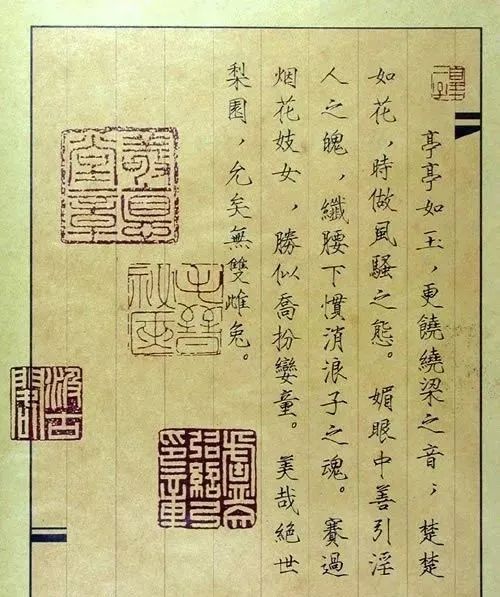 亭亭如玉，更饒繞梁之音；楚楚
如花，時做風騷之態。媚眼中善引淫
人之魄，纖腰下慣消浪子之魂。賽過
烟花妓女，勝似喬扮孌童。美哉絕世
梨園，允矣無雙雌兔。
汲古閣